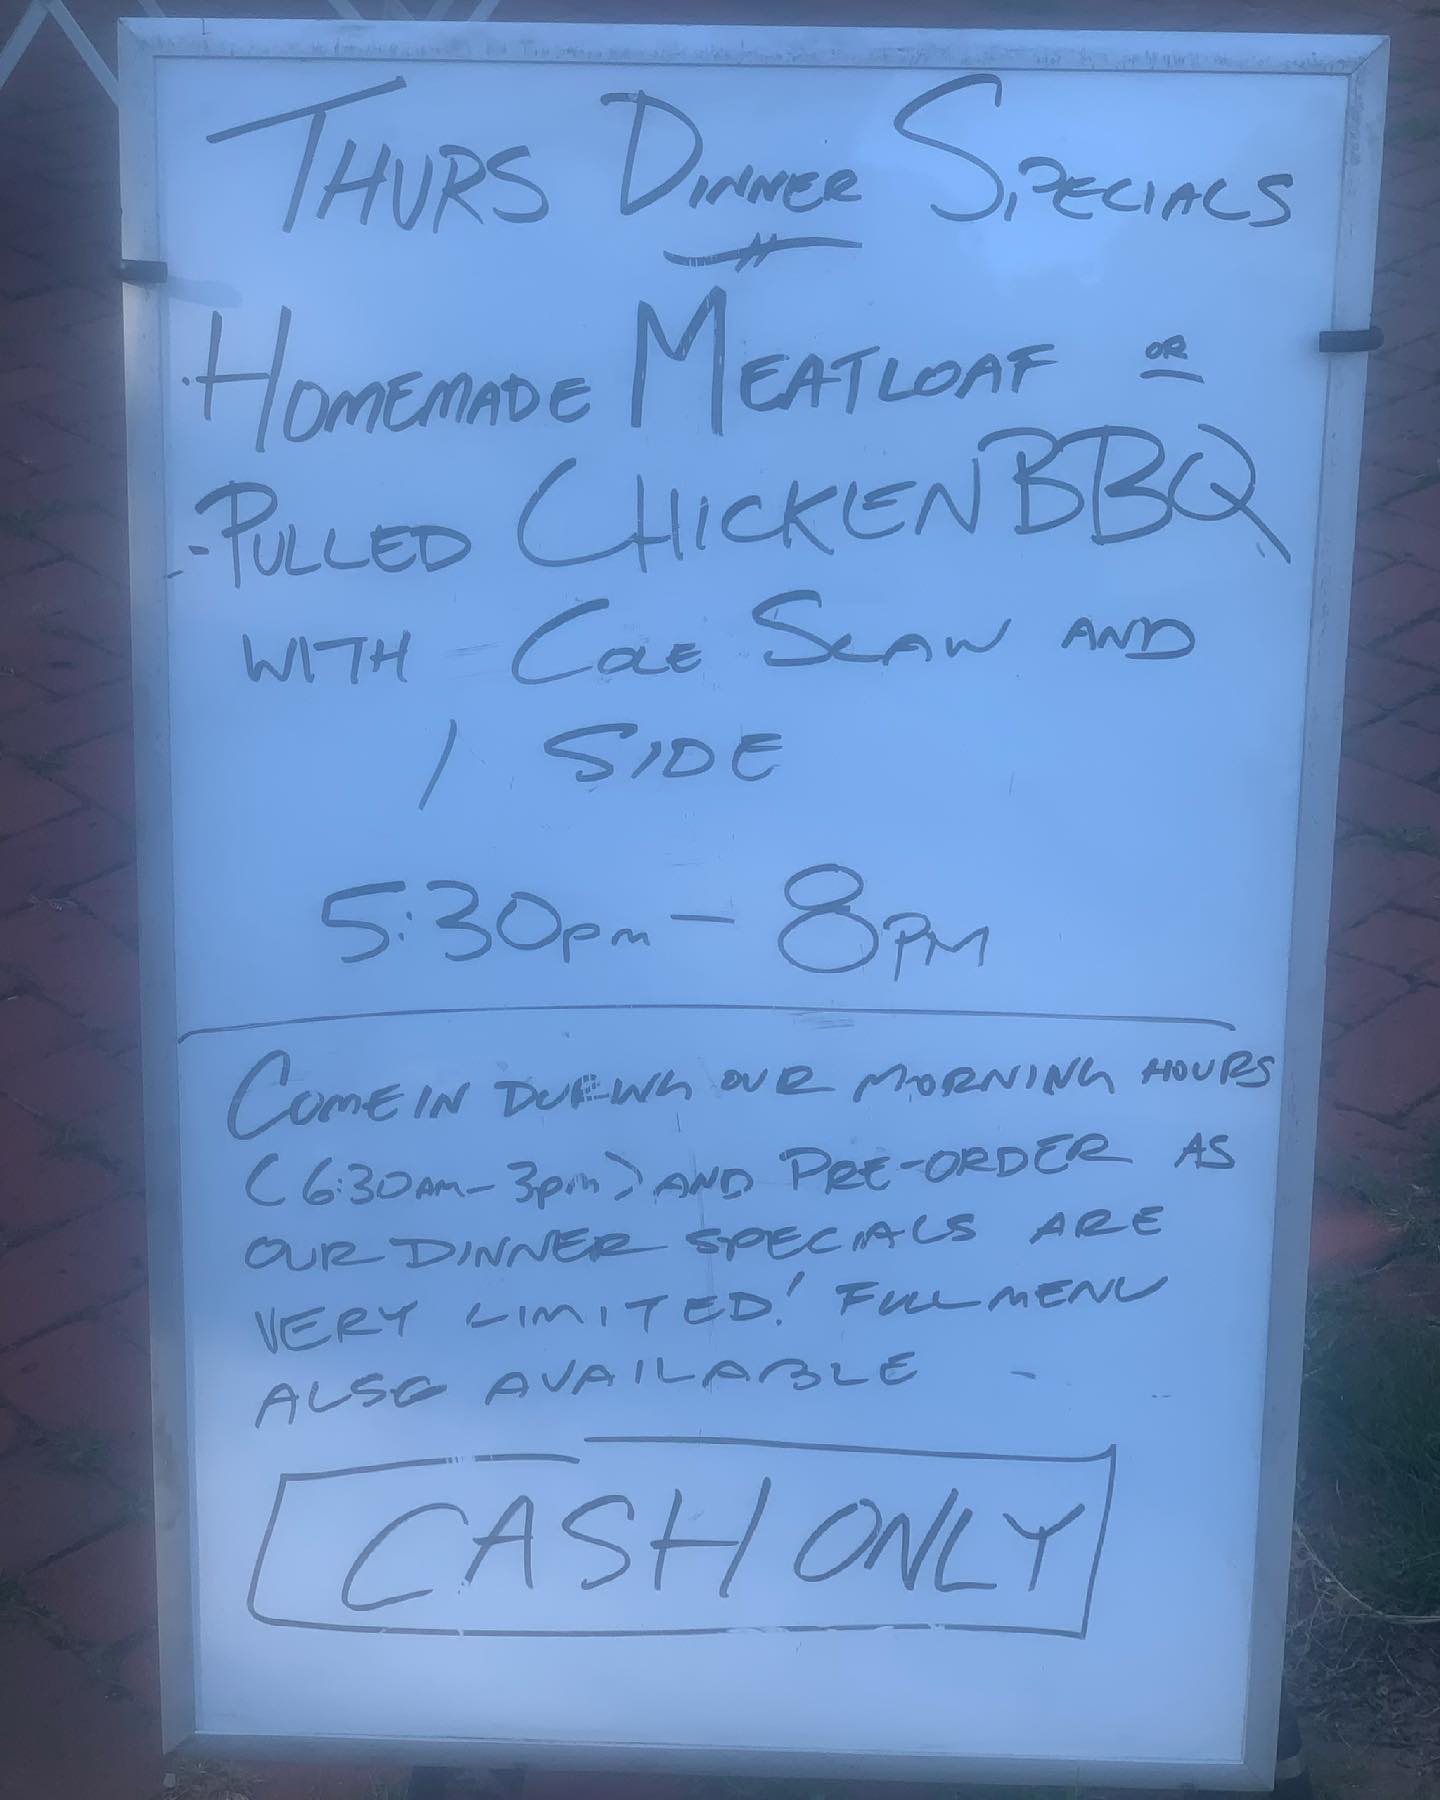 THURS DINNER SPECIALS
· HOMEMADE MEATLOAF OR
- PULLED CHICKEN BBQ
WITH COLE SLAW AND
1 SIDE
5:30pm - 8PM
COME IN DURING OUR MORNING HOURS
(6:30AM - 3pm) AND PRE-ORDER AS
OUR DINNER SPECIALS ARE
VERY LIMITED! FULL MENU
ALSO AVAILABLE
CASH ONLY